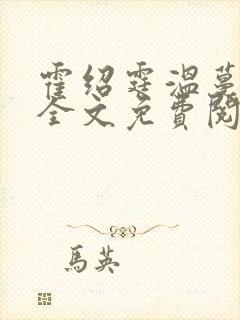 霍绍霆温蔓
全文免費閱
馬英